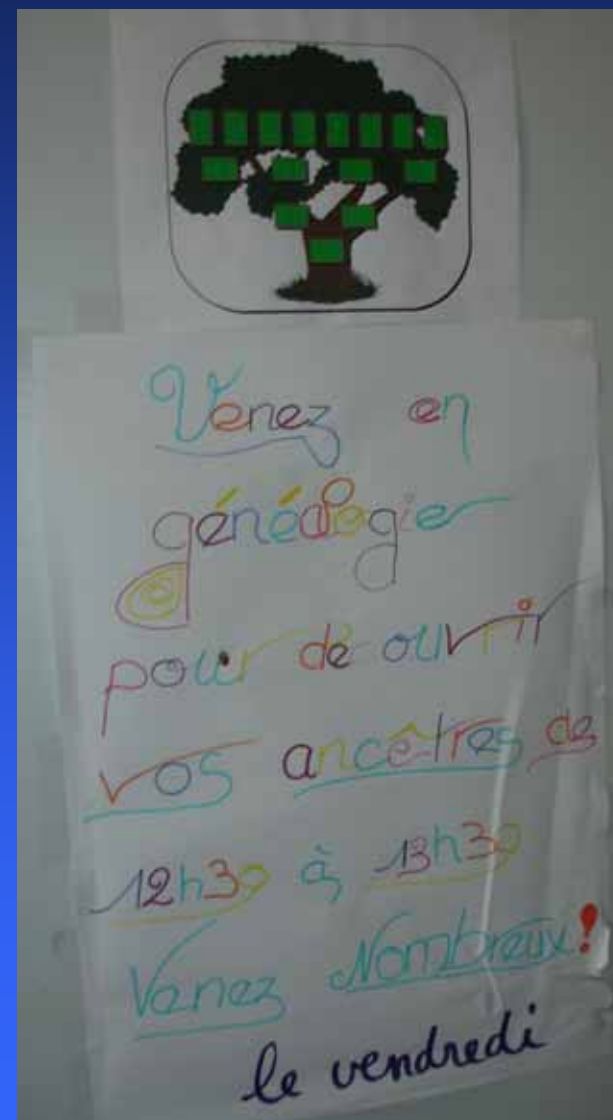 Venez en
généalogie
pour dé ouvrir
vos ancêtres de
12h30 à 13h30
Venez Nombreux!
le vendredi